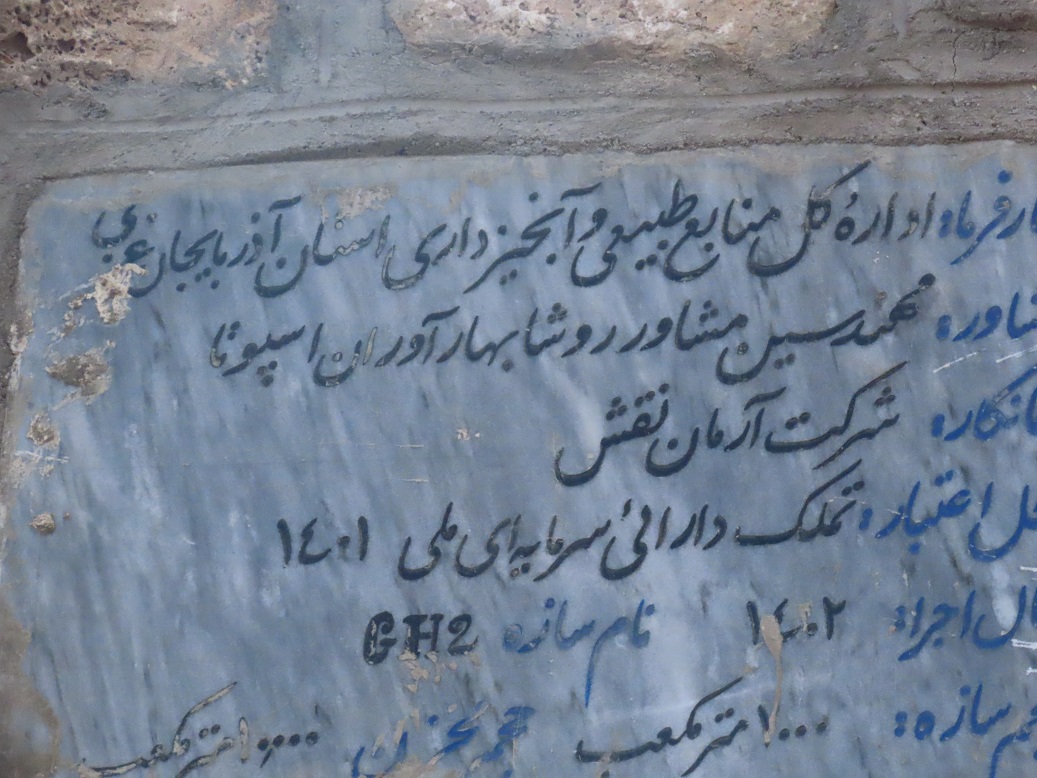 ارفرما: ادارهٔ کل منابع طبیعی و آبخیزداری استان آذربایجان غربی
شاور: مهندسین مشاور روشا بهار آوران اسپوتا
مانکار: شرکت آرمان نقش
حل اعتبار: تملک دارائی سرمایه‌ای ملی ۱٤۰۱
ال اجرا: ۱٤۰۲ نام سازه GH2
جم سازه: ۱۰۰۰ متر مکعب حجم مخزن ۱۰۰۰۰ متر مکعب